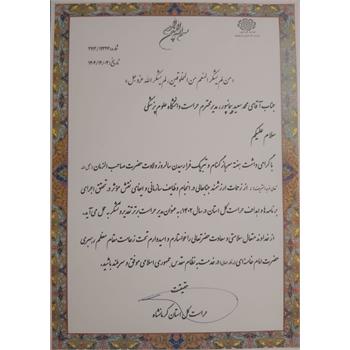 بسم الله الرحمن الرحیم
شماره
تاریخ
«من لم یشکر المنعم من المخلوقین، لم یشکر الله عزوجل»
جناب آقای محمد سعید جهانپور، مدیر محترم حراست دانشگاه علوم پزشکی
سلام علیکم
با گرامی داشت هفته سربازان گمنام و تبریک فرا رسیدن سالروز ولادت حضرت صاحب الزمان
از زحمات ارزشمند جنابعالی در انجام وظایف سازمانی و ایفای نقش موثر در تحقق اجرای
برنامه ها و اهداف حراست کل استان در سال ۱۴۰۲ به عنوان مدیر حراست برتر تقدیر و تشکر به عمل می آید.
از خداوند متعال سلامتی و سعادت حضرتعالی را خواستارم و امیدوارم تحت زعامت مقام معظم رهبری
حضرت امام خامنه ای در خدمت به نظام مقدس جمهوری اسلامی موفق و سربلند باشید.
حراست کل استان کرمانشاه